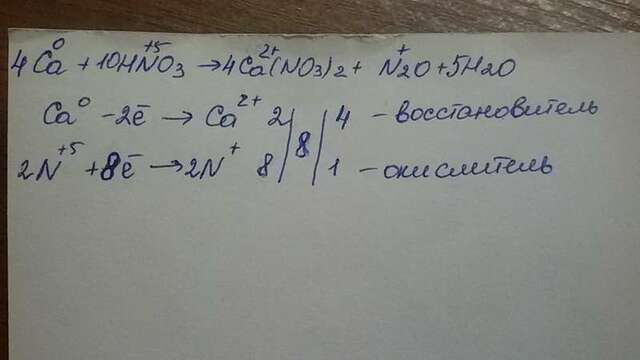 4Ca⁰ + 10HN⁺⁵O3 → 4Ca²⁺(NO3)2 + N⁺2O + 5H2O
Ca⁰ - 2ē → Ca²⁺ 2 | 8 | 4 - восстановитель
2N⁺⁵ + 8ē → 2N⁺ 8 | | 1 - окислитель